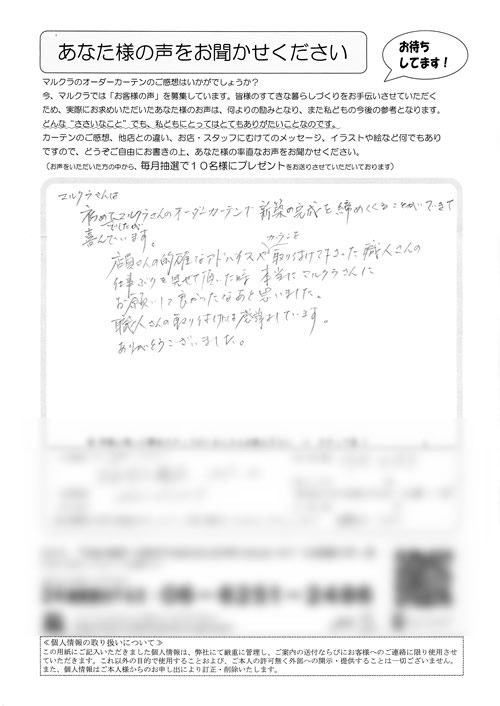 あなた様の声をお聞かせください
お待ち
してます！
マルクラのオーダーカーテンのご感想はいかがでしょうか？
今、マルクラでは「お客様の声」を募集しています。皆様のすてきな暮らしづくりをお手伝いさせていただく
ため、実際にお求めいただいたあなた様のお声は、何よりの励みとなり、また私どもの今後の参考となります。
どんな“ささいなこと”でも、私どもにとってはとてもありがたいことなのです。
カーテンのご感想、他店との違い、お店・スタッフにむけてのメッセージ、イラストや絵など何でもあり
ですので、どうぞご自由にお書きの上、あなた様の率直なお声をお聞かせください。
（お声をいただいた方の中から、毎月抽選で１０名様にプレゼントをお送りさせていただいております）
マルクラさんは
初めてでしたがマルクラさんのオーダーカーテンで新築の完成を締めくくることができて
喜んでいます。
店員さんの的確なアドバイスやカーテンを取り付けて下さった職人さんの
仕事ぶりを見せて頂いた時本当にマルクラさんに
お願いして良かったなあと思いました。
職人さんの取り付けには感謝しています。
ありがとうございました。
≪個人情報の取り扱いについて≫
この用紙にご記入いただきました個人情報は、弊社にて厳重に管理し、ご案内の送付ならびにお客様へのご連絡に限り使用させ
ていただきます。これ以外の目的で使用することおよび、ご本人の許可無く外部への開示・提供することは一切ございません。
また、個人情報はご本人様からのお申し出により訂正・削除いたします。